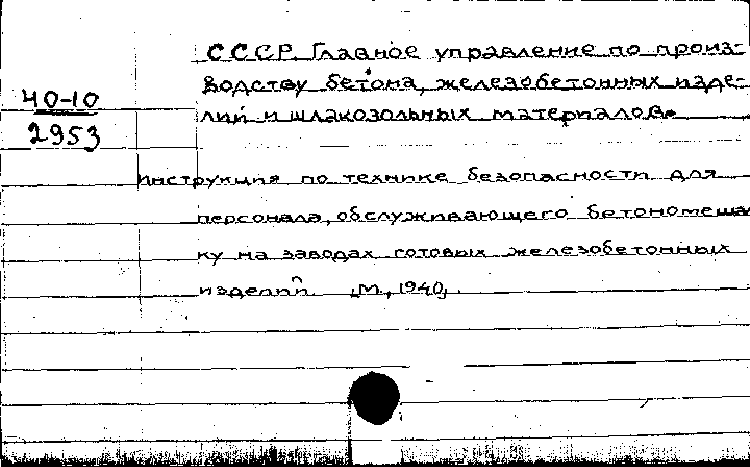 СССР. Главное управление по произ-
водству бетона, железобетонных изде-
40-10
лий и шлакозольных материалов.
2953
Инструкция по технике безопасности для
персонала, обслуживающего бетономеша
ку на заводах готовых железобетонных
изделий. М., 1940,